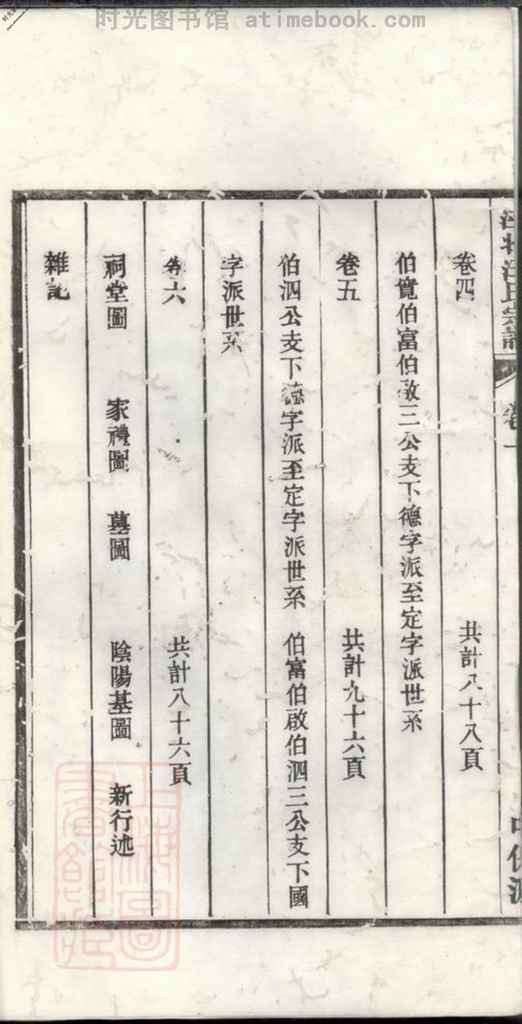 时光图书馆 atimebook.com
汪氏宗譜 卷一
卷四 共計八十八頁
伯寬伯富伯啟三公支下德字派至定字派世系
卷五 共計九十六頁
伯泗公支下德字派至定字派世系 伯富伯啟伯泗三公支下國
字派世系
卷六 共計八十六頁
祠堂圖 家禮圖 墓圖 陰陽基圖 新行述
雜記
上海圖書館藏